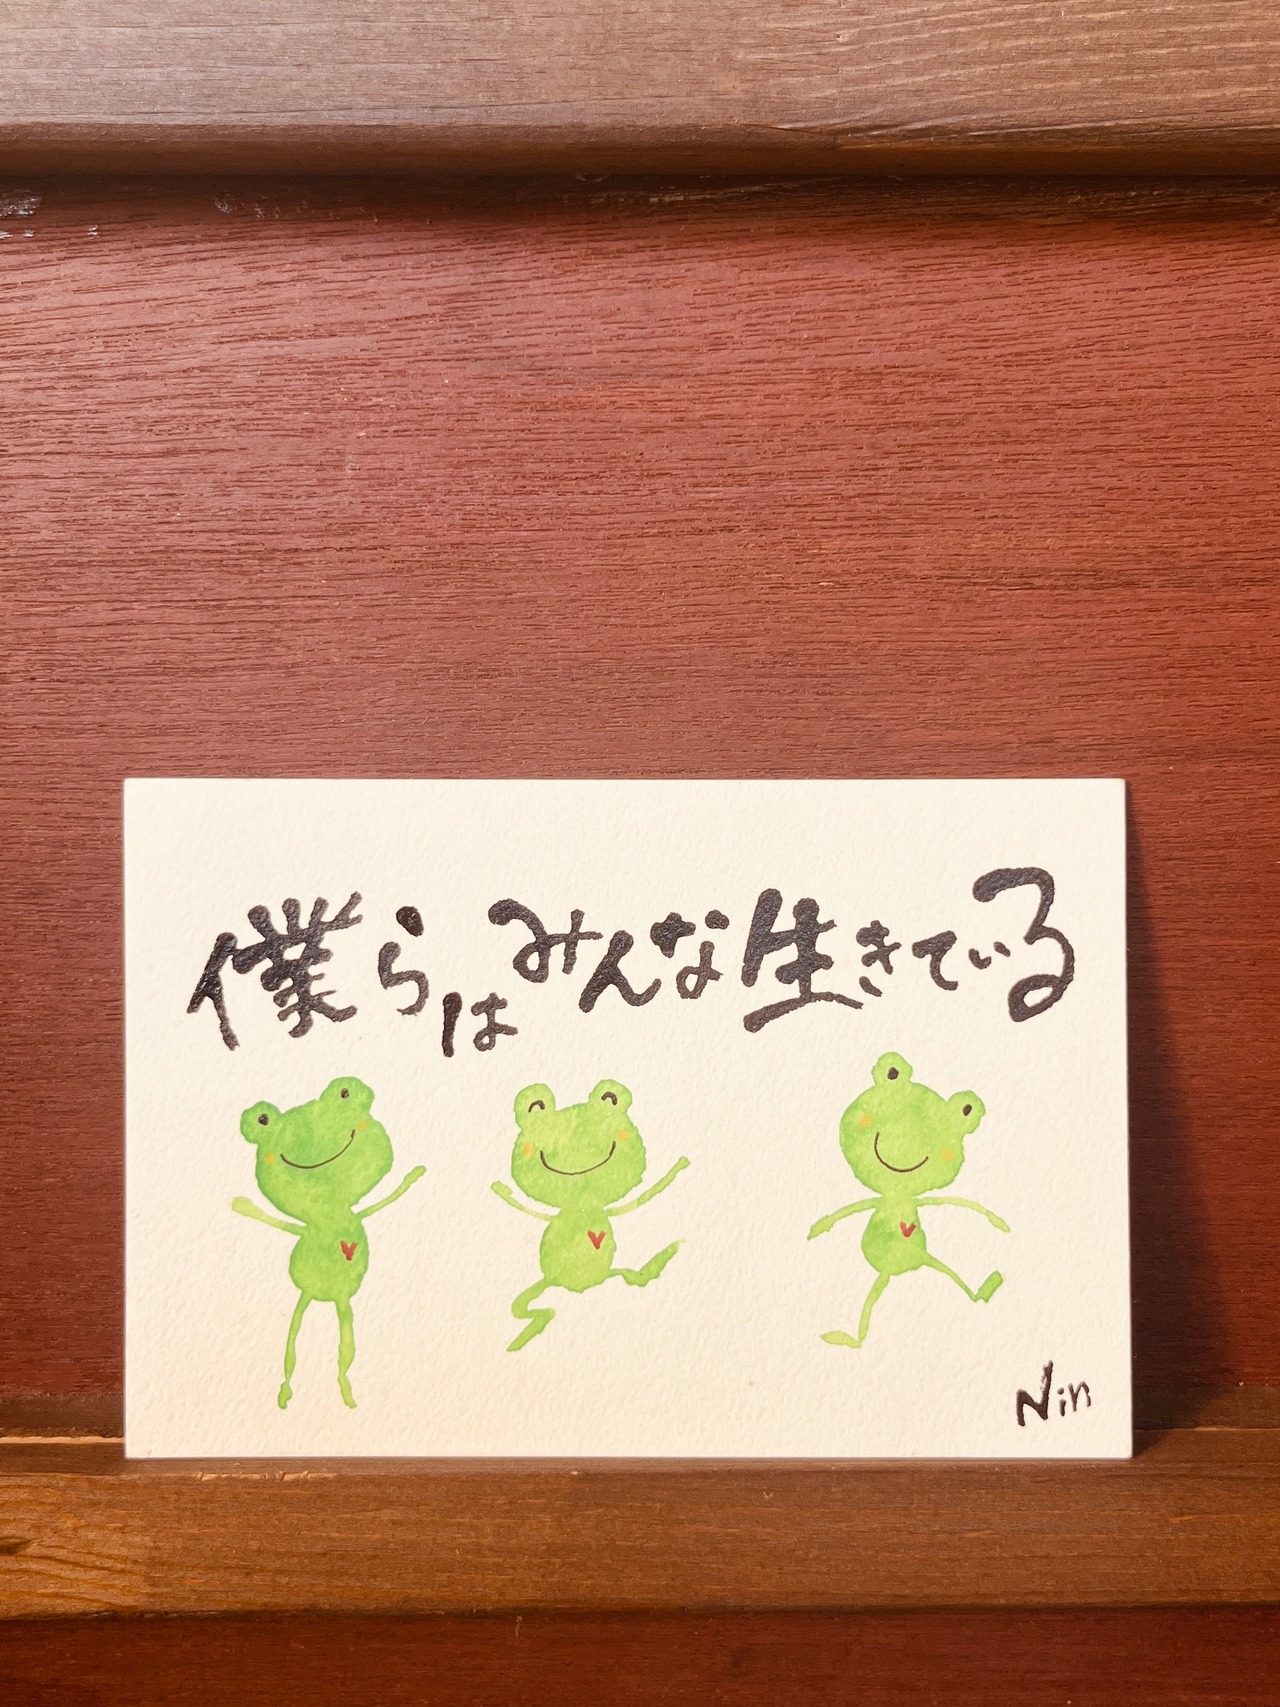 僕らはみんな生きている
Nin